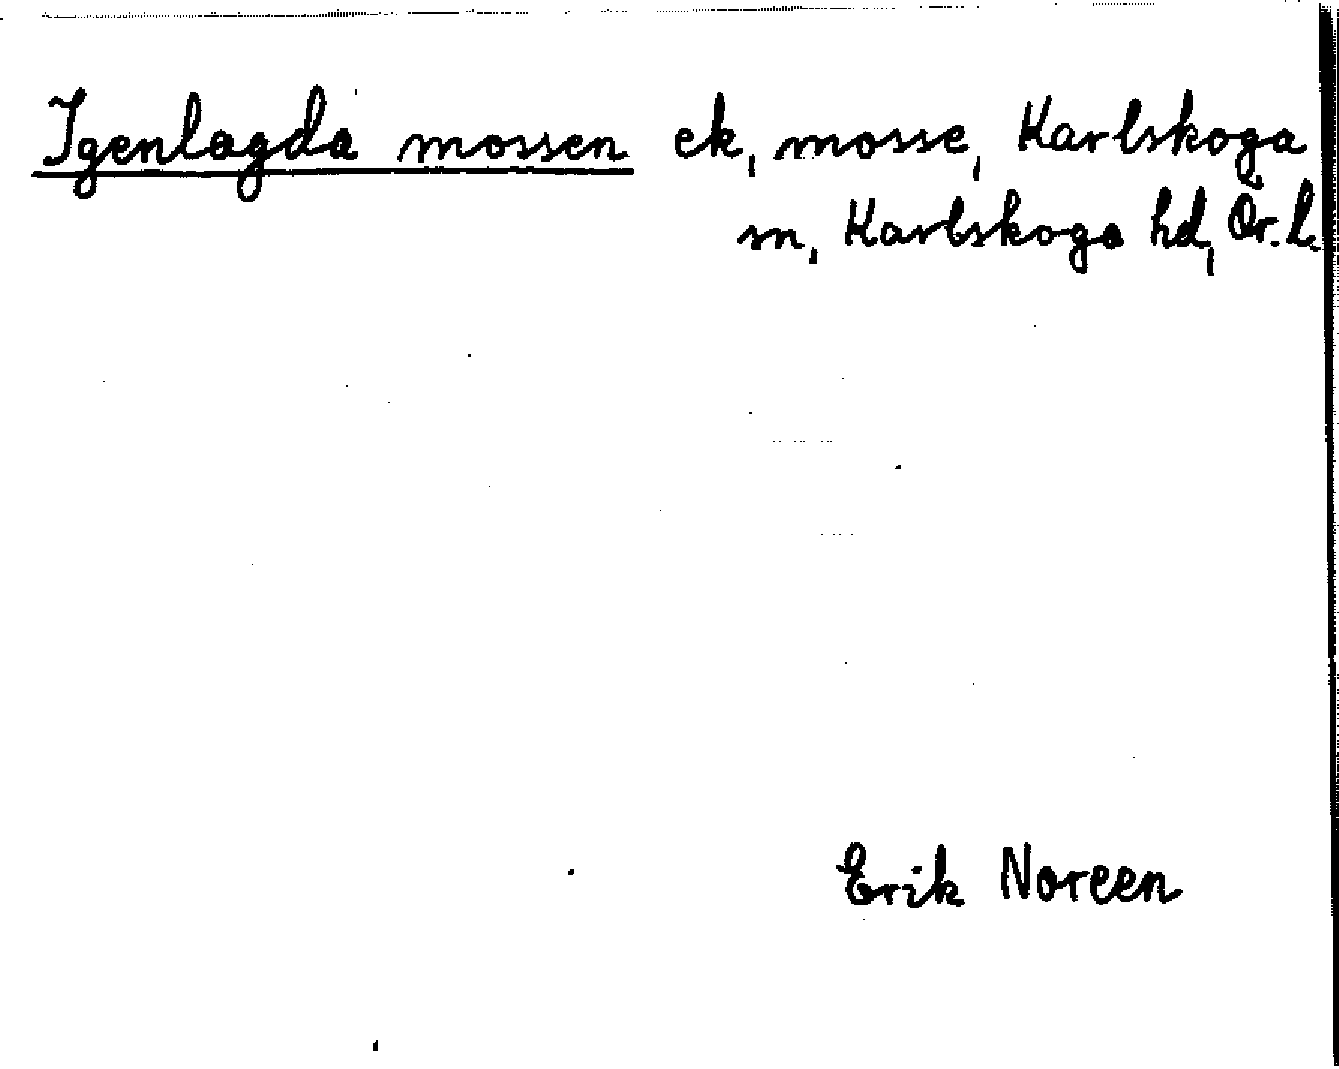 Igenlagda mossen ek, mosse, Karlskoga
sn, Karlskoga hd, Ör. l.
Erik Noreen